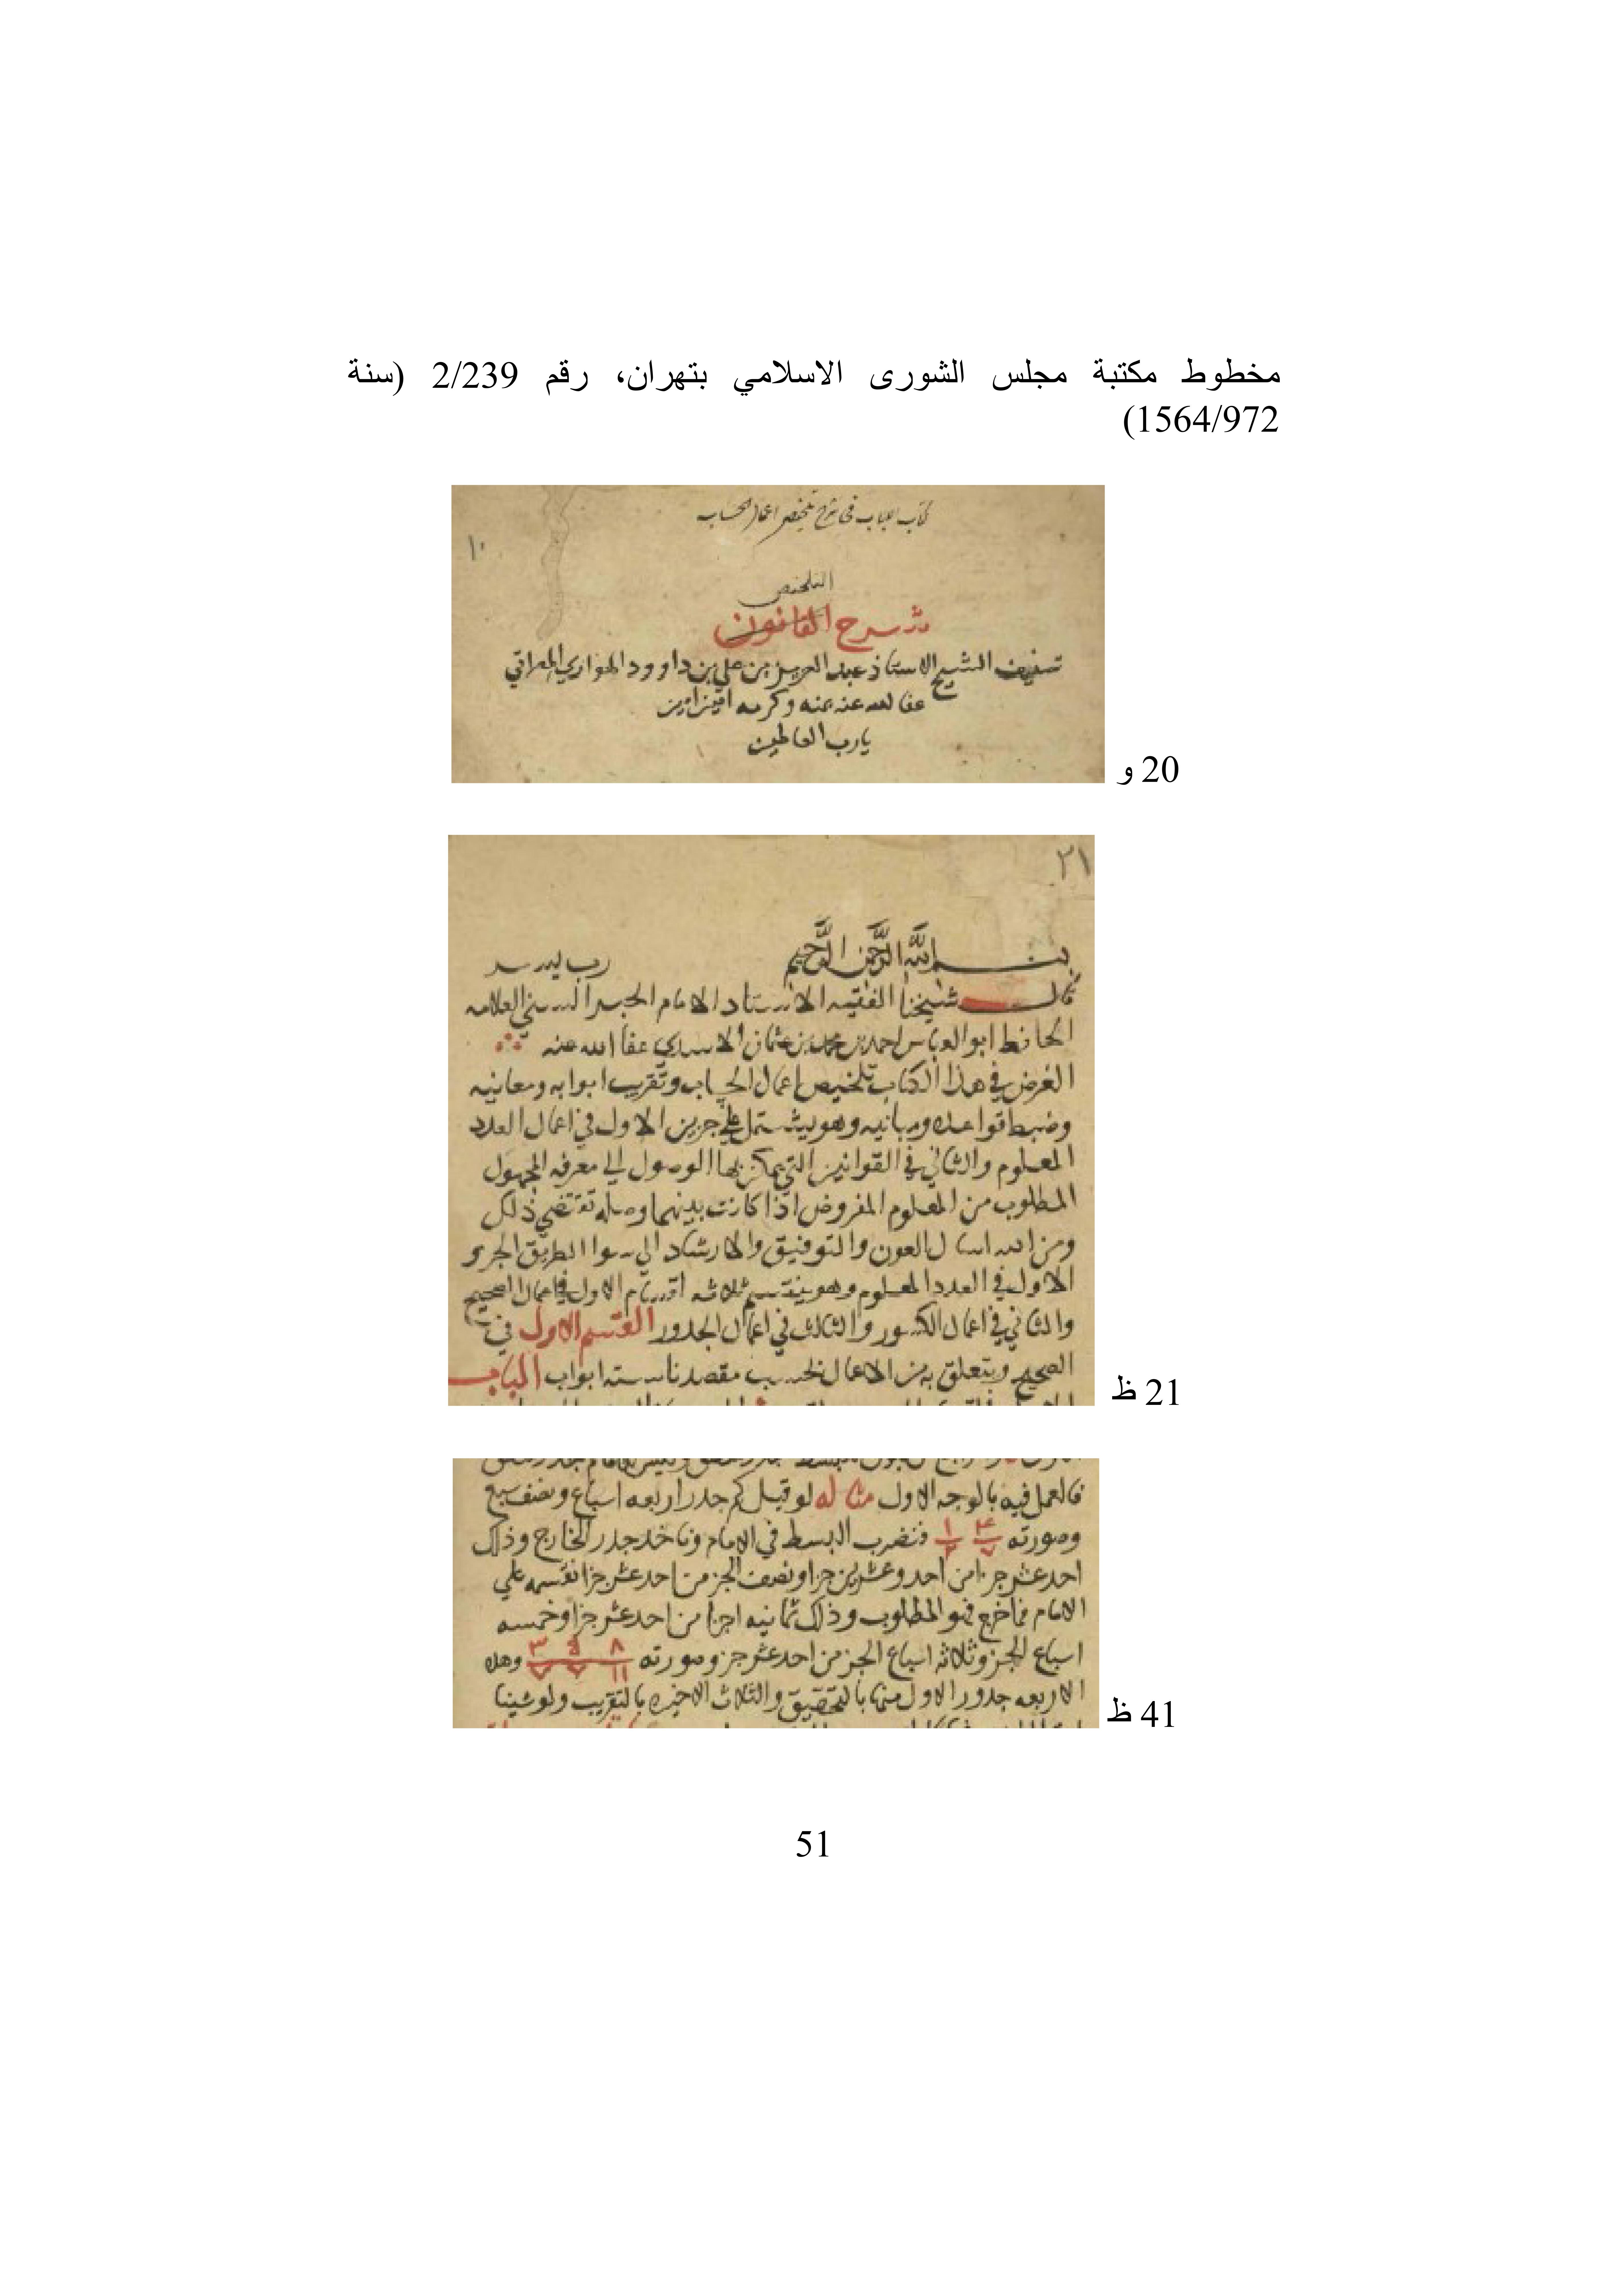 مخطوط مكتبة مجلس الشورى الاسلامي بتهران، رقم 2/239 (سنة
1564/972)
كتاب اللباب في شرح تلخيص اعمال الحساب
١٠
التلخيص
شرح القانون
تصنيف الشيخ الاستاذ عبد العزيز بن علي بن داوود الهواري
عفا الله عنه بمنه وكرمه امين امين
يا رب العالمين
20 و
٢١
بسم الله الرحمن الرحيم رب يسر
قال شيخنا الفقيه الاستاد الامام الحبر السني العلامه
الحافظ ابو العباس احمد بن محمد بن عثمان الاسدي عفا الله عنه
الغرض في هذا الكتاب تلخيص اعمال الحساب وتقريب ابوابه ومعانيه
وضبط قواعده ومبانيه وهو يشتمل علي جزين الاول في اعمال العدد
المعلوم والثاني في القوانين التي يمكن بها الوصول الي معرفه المجهول
المطلوب من المعلوم المفروض اذا كانت بينهما وصله تقتضي ذلك
ومن الله اسال العون والتوفيق والارشاد الي سوا الطريق الجزو
الاول في العدد المعلوم وهو ينقسم ثلاثه اقسام الاول في اعمال الصحيح
والثاني في اعمال الكسور والثالث في اعمال الجدور القسم الاول في
الصحيح ويتعلق به من الاعمال بحسب مقصدنا سته ابواب الباب
21 ظ
فالعمل فيه بالوجه الاول مثاله لو قيل كم جدر اربعه اسباع ونصف سبع
وصورته ١ ٤ ٢ ٧ فنضرب البسط في الامام وناخد جدر الخارج وذلك
احد عشر جزا من احد وعشرين جزا ونصف الجز من احد عشر جزا نقسمه علي
الامام فما خرج فهو المطلوب وذلك ثمانيه اجزا من احد عشر جزا وخمسه
اسباع الجز وثلاثه اسباع الجز من احد عشر جز وصورته وهده
الاربعه جدور الاول منها بالتحقيق والثلاث الاخيره بالتقريب ولو شينا
41 ظ
51